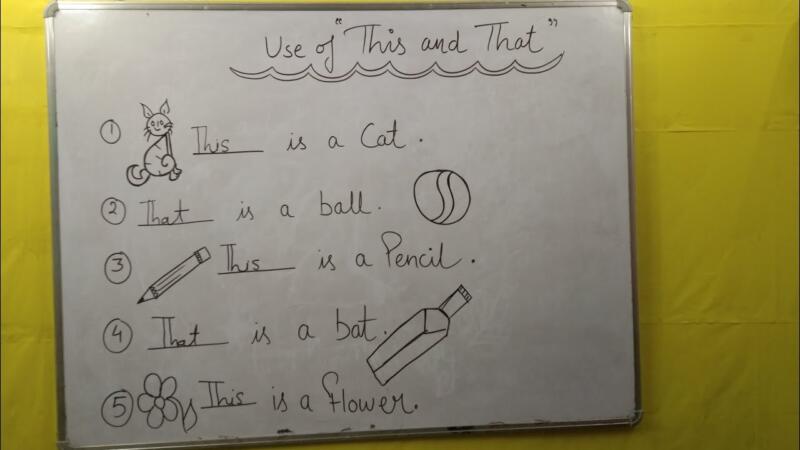 Use of "This and That"
1 This is a Cat.
2 That is a ball.
3 This is a Pencil.
4 That is a bat.
5 This is a flower.